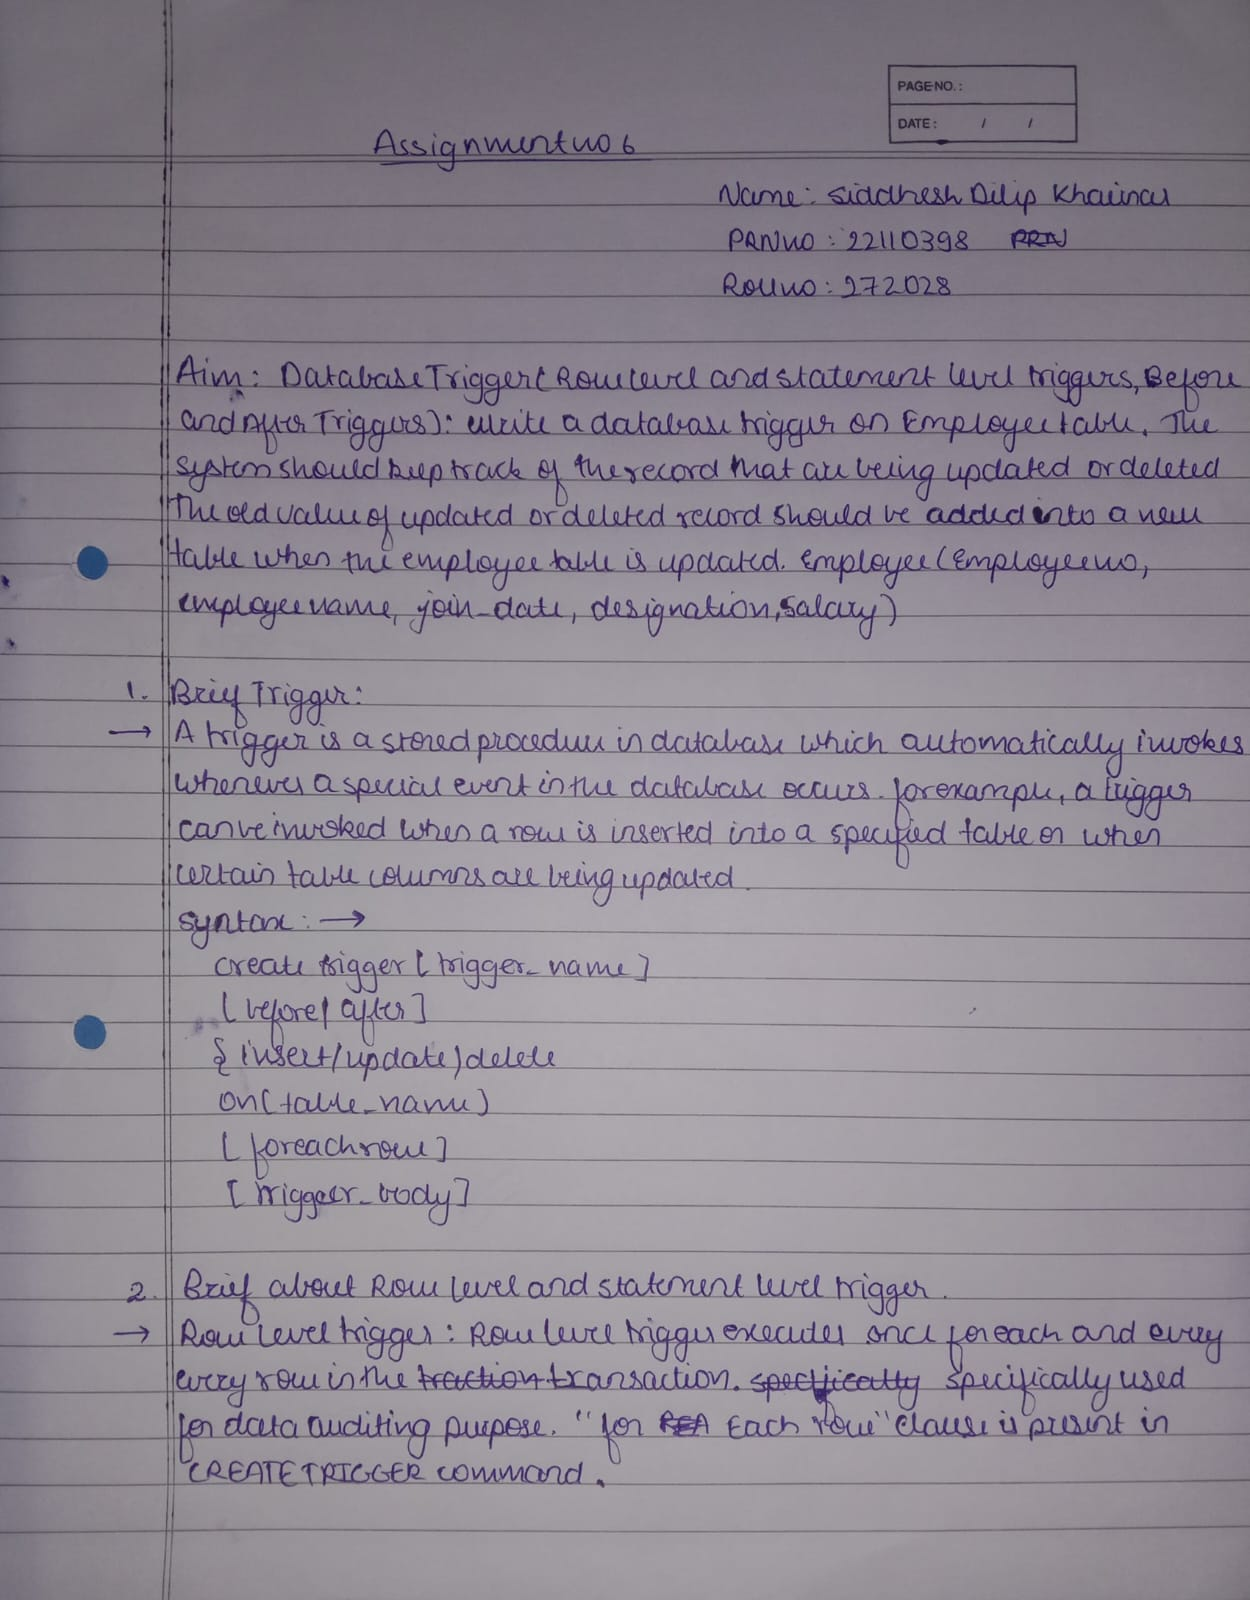 PAGE NO.:
DATE: / /
Assignment no 6
Name: Siddhesh Dilip Khairnar
PRN no : 22110398 PRN
Roll no : 272028
Aim: Database Trigger (Row level and statement level triggers, Before
and After Triggers): Write a database trigger on Employee table. The
system should keep track of the record that are being updated or deleted
The old value of updated or deleted record should be added into a new
table when the employee table is updated. Employee (Employee no,
employee name, join_date, designation, Salary)
1. Brief Trigger:
→ A trigger is a stored procedure in database which automatically invokes
whenever a special event in the database occurs. for example, a trigger
can be invoked when a row is inserted into a specified table or when
certain table columns are being updated.
syntax: →
create trigger [trigger_name]
[before/after]
{insert/update/delete
on [table_name]
[for each row]
[trigger_body]
2. Brief about Row level and statement level trigger.
→ Row level trigger : Row level trigger executes once for each and every
every row in the traction transaction. specfically specifically used
for data auditing purpose. "for Each row" clause is present in
CREATE TRIGGER command.